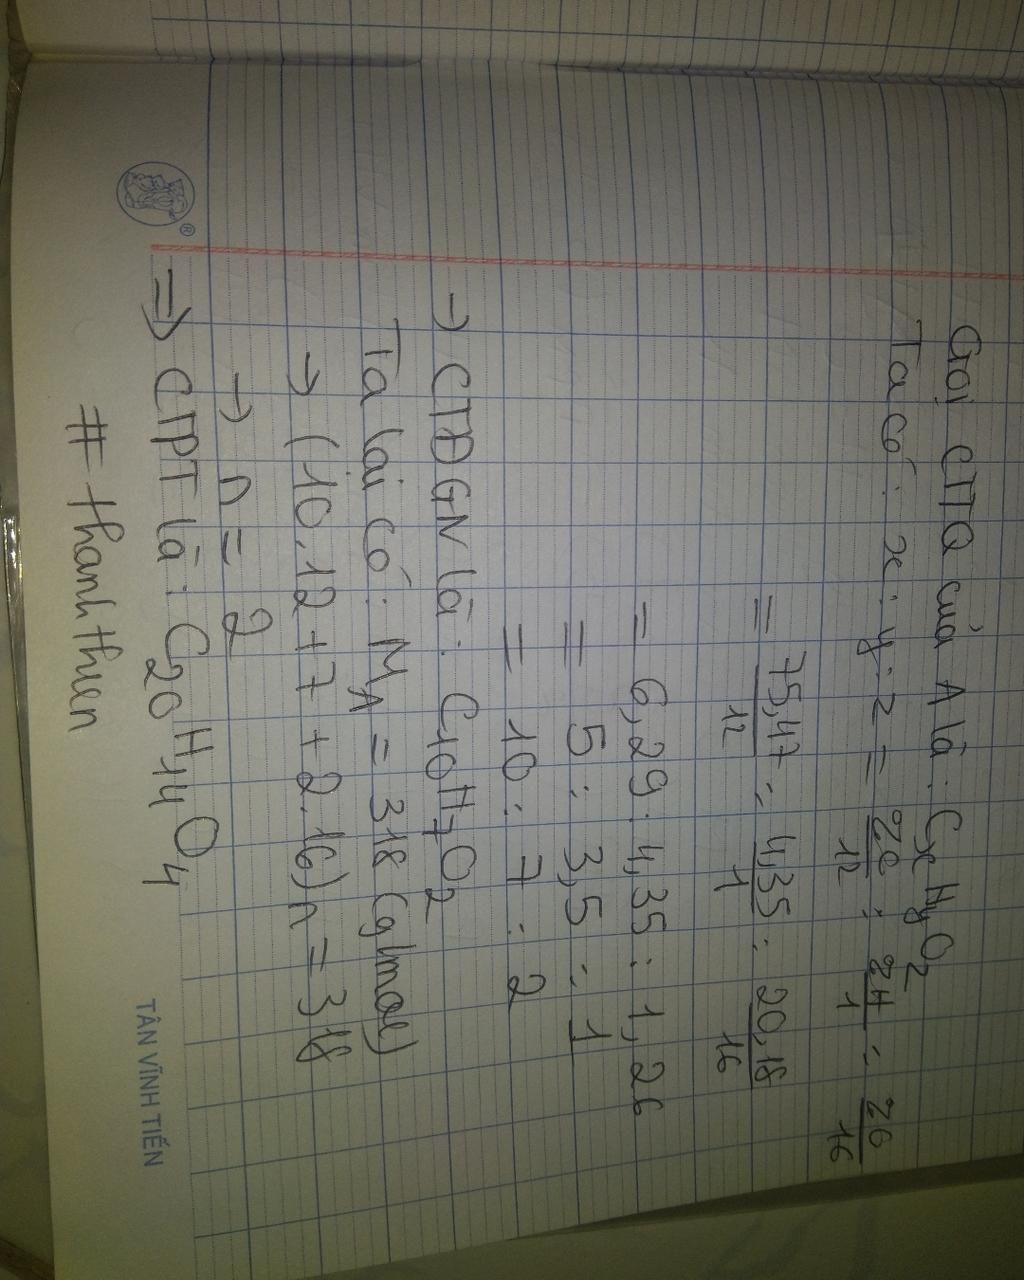 Gọi CTTQ của A là: CxHyO2
Ta có: x:y:z = %C/12 : %H/1 : %O/16
= 75,47/12 : 4,35/1 : 20,18/16
= 6,29 : 4,35 : 1,26
= 5 : 3,5 : 1
= 10 : 7 : 2
→ CTĐGN là: C10H7O2
Ta lại có: MA = 318 (g/mol)
→ (10.12+7+2.16)n = 318
→ n = 2
⇒ CTPT là: C20H14O4
# thanhthuen
®
TÂN VĨNH TIẾN